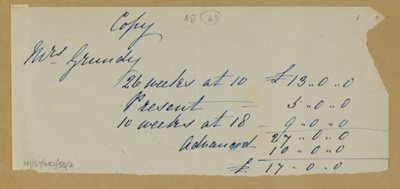 Copy
Mrs Grundy
26 weeks at 10 £13 .. 0 .. 0
Present — 5 .. 0 .. 0
10 weeks at 18 — 9 .. 0 .. 0
Advanced 27 .. 0 .. 0
10 .. 0 .. 0
£ 17 .. 0 .. 0